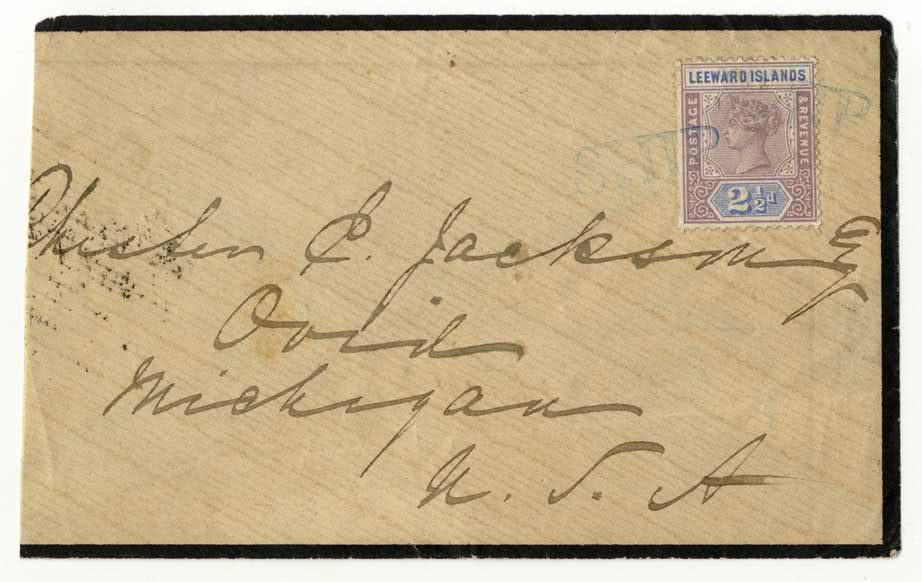 LEEWARD ISLANDS
POSTAGE
& REVENUE
2½d
Chester C. Jackson Esq
Ovid
Michigan
U. S. A